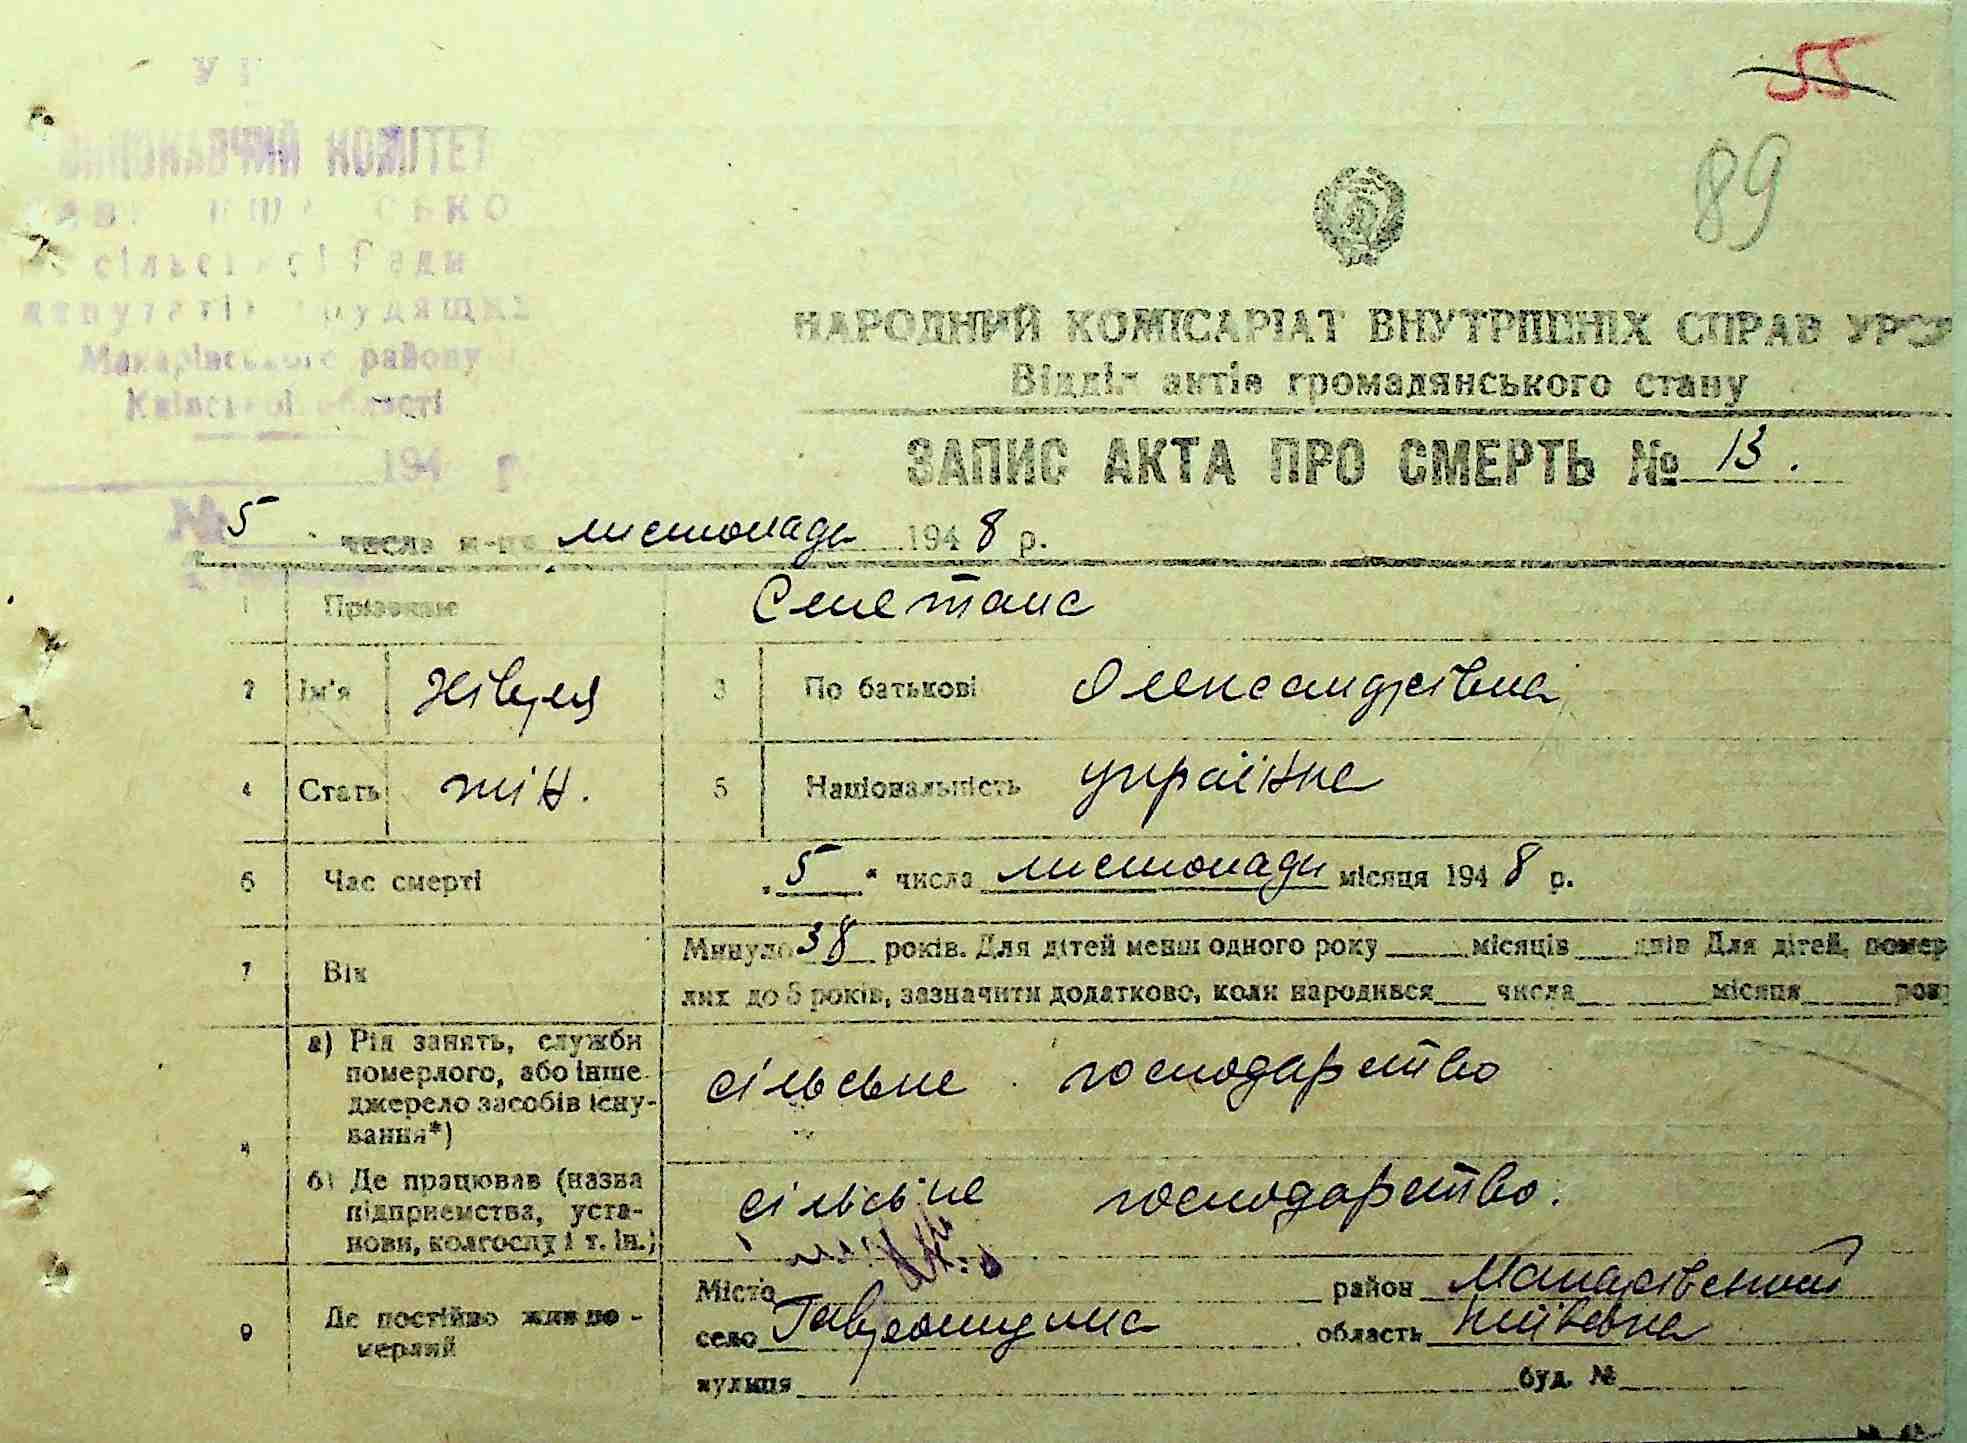 55
89
КОМІТЕТ
сільської Ради
депутатів трудящих
Макарівського району
Київської області
194 р.
№
НАРОДНИЙ КОМІСАРІАТ ВНУТРІШНІХ СПРАВ УРСР
Відділ актів громадянського стану
ЗАПИС АКТА ПРО СМЕРТЬ № 13.
5 числа м-ця листопада 1948 р.
1 Прізвище Сметана
2 Ім'я 3 По батькові Олександрівна
4 Стать жін. 5 Національність українка
6 Час смерті „5" числа листопада місяця 1948 р.
7 Вік Минуло 38 років. Для дітей менш одного року місяців днів Для дітей, помер-
лих до 5 років, зазначити додатково, коли народився числа місяця року
8 а) Рід занять, служби
померлого, або інше
джерело засобів існу-
вання*) сільське господарство
б) Де працював (назва
підприємства, уста-
нови, колгоспу і т. ін.) сільське господарство.
9 Де постійно жив по-
мерлий
Місто район Макарівський
село Гавронщина область Київська
вулиця буд. №